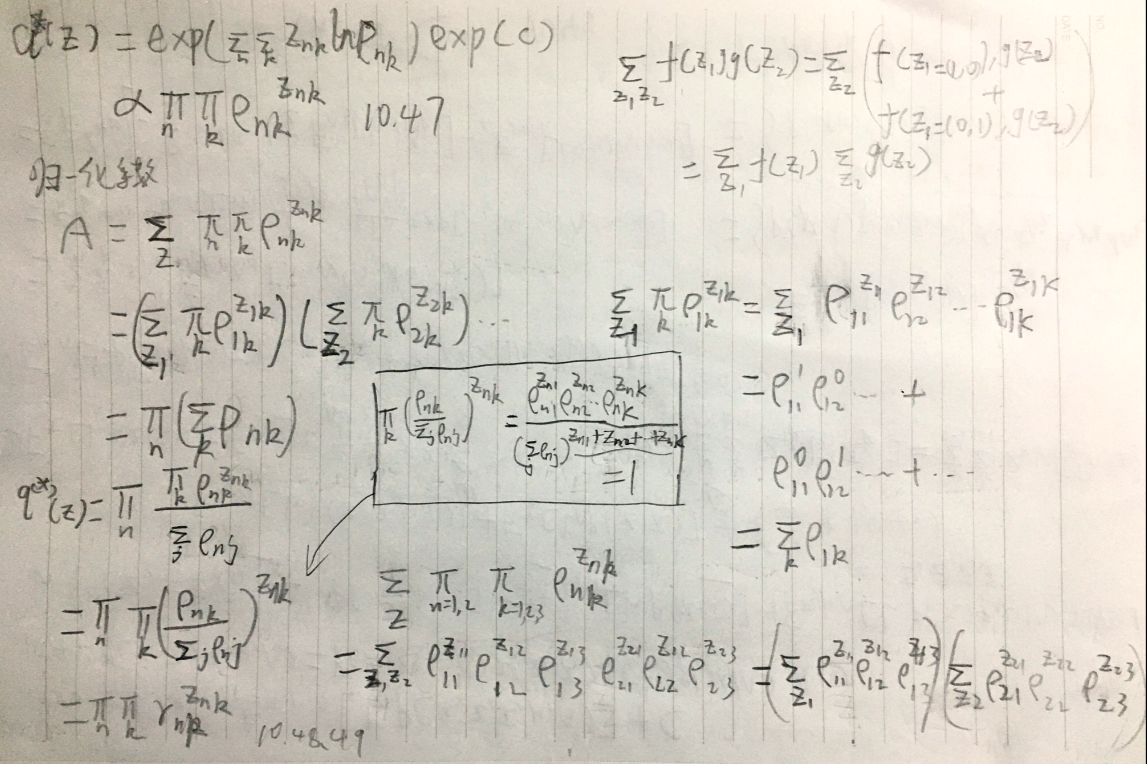 q*(z) = exp(Σ_n Σ_k z_nk ln ρ_nk) exp(c)
∝ π_n π_k ρ_nk^{z_nk}    10.47
归一化系数
A = Σ_Z π_n π_k ρ_nk^{z_nk}
= (Σ_{Z_1} π_k ρ_1k^{z_1k}) (Σ_{Z_2} π_k ρ_2k^{z_2k}) ...
= π_n (Σ_k ρ_nk)
q^{(*)}(z) = π_n (π_k ρ_nk^{z_nk}) / (Σ_j ρ_nj)
= π_n π_k (ρ_nk / Σ_j ρ_nj)^{z_nk}
= π_n π_k r_nk^{z_nk}    10.48,49
π_k (ρ_nk / Σ_j ρ_nj)^{z_nk} = (ρ_n1^{z_n1} ρ_n2^{z_n2} ... ρ_nK^{z_nK}) / (Σ_j ρ_nj)^{z_n1+z_n2+...+z_nK}
= 1
Σ_{z_1 z_2} f(z_1) g(z_2) = Σ_{z_2} ( f(z_1=(1,0)), g(z_2)
+
f(z_1=(0,1)), g(z_2) )
= Σ_{z_1} f(z_1) Σ_{z_2} g(z_2)
Σ_{Z_1} π_k ρ_1k^{z_1k} = Σ_{Z_1} ρ_11^{z_11} ρ_12^{z_12} ... ρ_1K^{z_1K}
= ρ_11^1 ρ_12^0 ... +
ρ_11^0 ρ_12^1 ... + ...
= Σ_k ρ_1k
Σ_Z π_{n=1,2} π_{k=1,2,3} ρ_nk^{z_nk}
= Σ_{z_1 z_2} ρ_11^{z_11} ρ_12^{z_12} ρ_13^{z_13} ρ_21^{z_21} ρ_22^{z_12} ρ_23^{z_23} = (Σ_{z_1} ρ_11^{z_11} ρ_12^{z_12} ρ_13^{z_13}) (Σ_{z_2} ρ_21^{z_21} ρ_22^{z_22} ρ_23^{z_23})